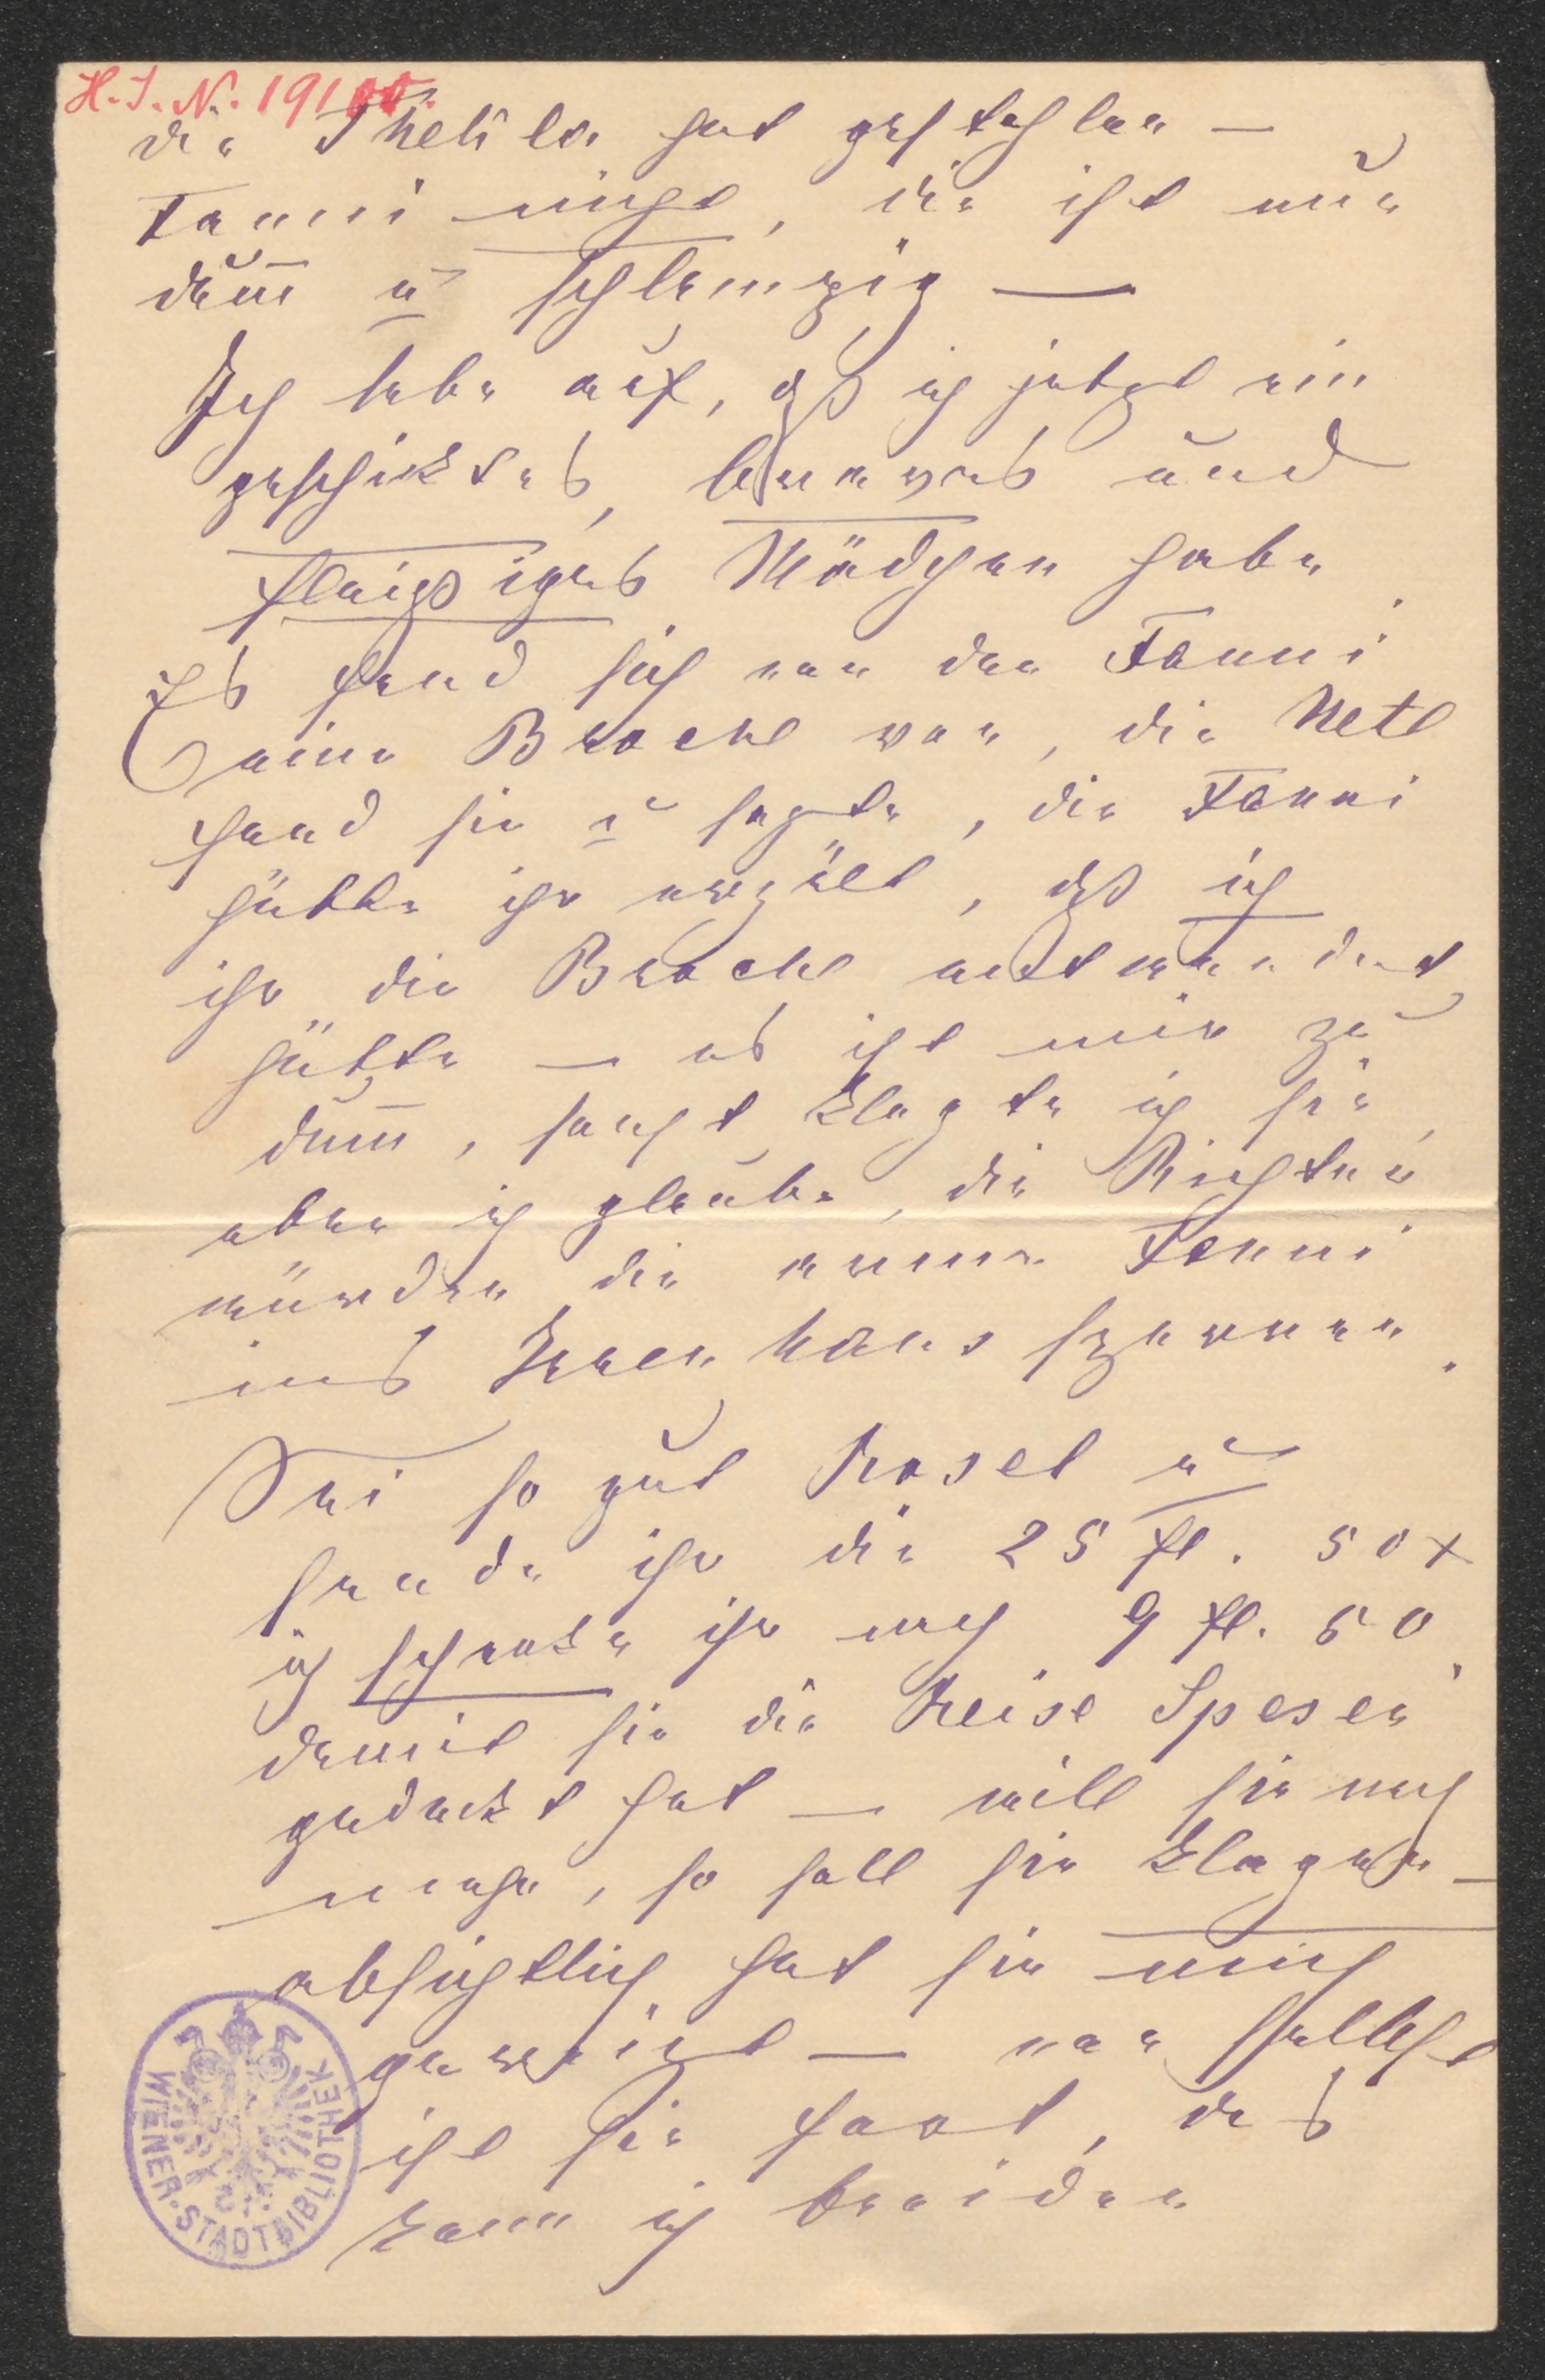 H. I. N. 19100.
die Thekla hat gestohlen —
Fanni nicht, die ist nur
dum̄ u schlampig —
Ich lebe auf, daß ich jetzt ein
geschiktes, braves und
fleißiges Mädchen habe.
Es fand sich von der Fanni
eine Broche vor, die Netl
fand sie u sagte, die Fanni
hätte ihr erzält, daß ich
ihr die Broche entwendet
hätte — es ist mir zu
dum̄, sonst klagte ich sie,
aber ich glaube, die Richter
würden die arme Fanni
ins Irrenhaus sperren.
Sei so gut Rosel u
sende ihr die 25 fl. 50 x
ich schenke ihr noch 9 fl. 50,
damit sie die Reise Spesen
gedekt hat — will sie noch
mehr, so soll sie klagen —
absichtlich hat sie mich
gereizt — von selbst
ist sie fort, das
kann ich beeiden
WIENER·STADTBIBLIOTHEK